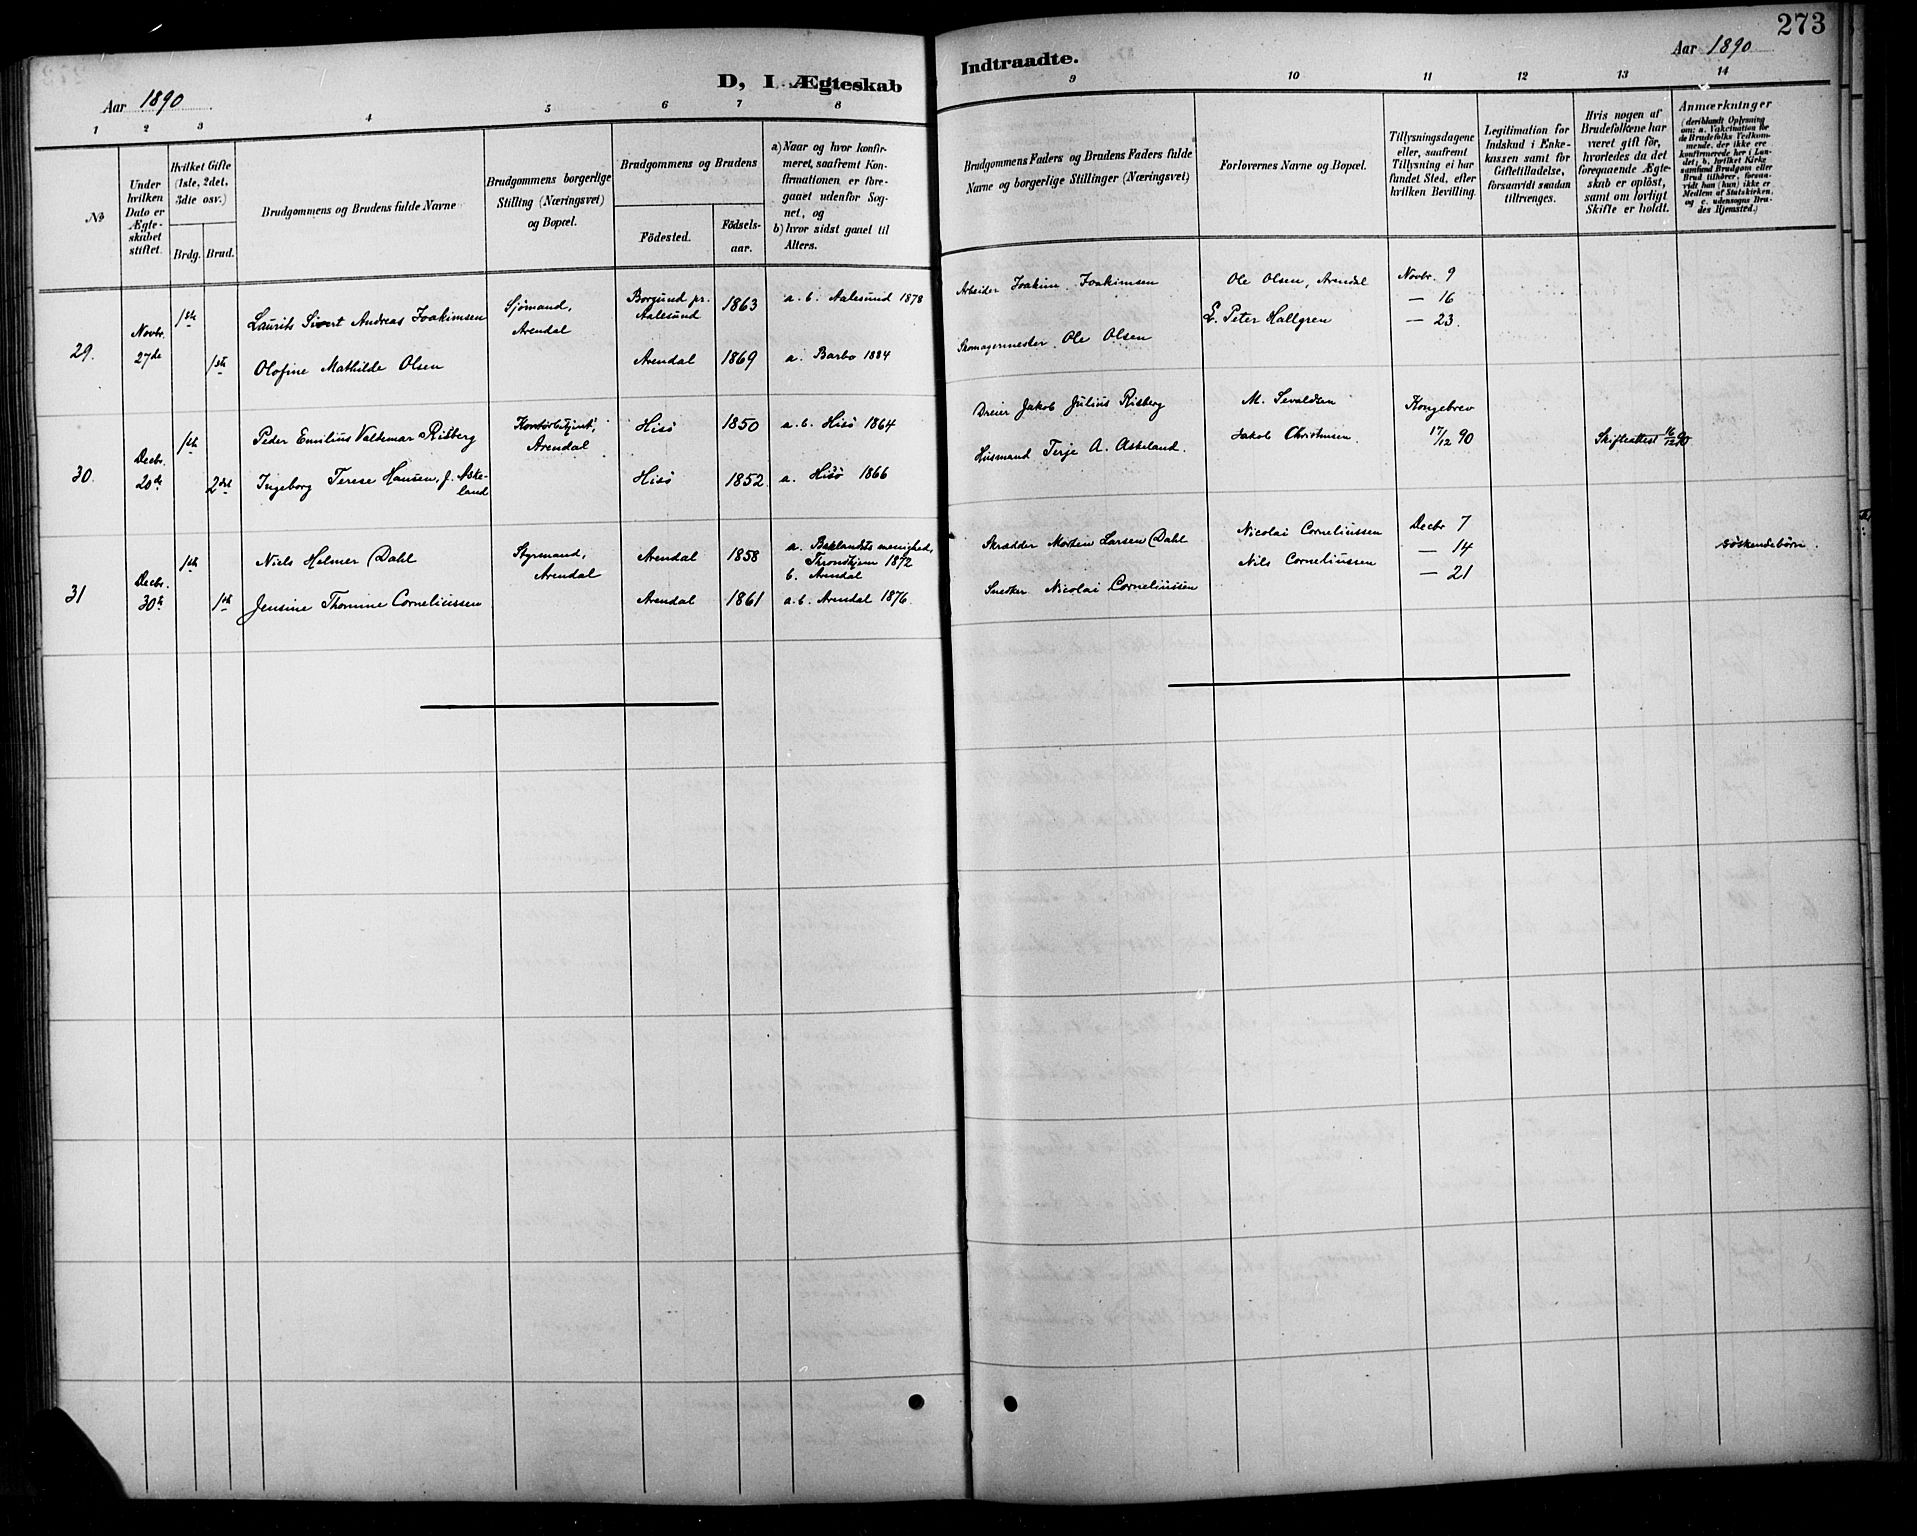 273
Aar 1890
D, I Ægteskab
Indtraadte.
Aar 1890
1 2 3 4 5 6 7 8 9 10 11 12 13 14
No
Under hvilken Dato er Ægteskabet stiftet.
Hvilket Gifte (1ste, 2det, 3dte osv.)
Brdg. Brud.
Brudgommens og Brudens fulde Navne
Brudgommens borgerlige Stilling (Næringsvei) og Bopæl.
Brudgommens og Brudens
Födested.
Födselsaar.
a) Naar og hvor konfirmeret, saafremt Konfirmationen er foregaaet udenfor Sognet, og
b) hvor sidst gaaet til Alters.
Brudgommens Faders og Brudens Faders fulde Navne og borgerlige Stillinger (Næringsvei)
Forlovernes Navne og Bopæl.
Tillysningsdagene eller, saafremt Tillysning ei har fundet Sted, efter hvilken Bevilling.
Legitimation for Indskud i Enkekassen samt för Giftetilladelse, forsaavidt saadan tiltrænges.
Hvis nogen af Brudefolkene har været gift för, hvorledes da det foregaaende Ægteskab er oplöst, samt om lovligt Skifte er holdt.
Anmærkninger (deriblandt Oplysning om: a. Vakcination for de Brudefolks Vedkommende, der ikke ere konfirmerede her i Landet; b. hvilket Kirkesamfund Brudgom eller Brud tilhører, forsaavidt han (hun) ikke er Medlem af Statskirken, og c. udensogns Brudes Hjemsted.)
29. Novbr. 27de 1ste Laurits Sivert Andreas Joakimsen Sjömand, Arendal Borgund pr. Aalesund 1863 a. b. Aalesund 1878 Arbeider Joakim Joakimsen Ole Olsen, Arendal Novbr. 9
E. Peter Hallgren — 16
— 23.
1ste Olofine Mathilde Olsen Arendal 1869 a. Barbo 1884 Skomagermester Ole Olsen
30. Decbr. 20de 1ste Peder Emilius Valdemar Risberg Kontorbetjent, Arendal Hisö 1850 a. b. Hisö 1864 Dreier Jakob Julius Risberg M. Sevaldsen Kongebrev
17/12 90
2det Ingeborg Terese Hansen, f. Askeland Hisö 1852. a. Hisö 1866 Husmand Terje A. Askeland. Jakob Christensen. Skifteattest 16/12 90
31 Decbr. 30te 1ste Niels Helmer Dahl Styrmand, Arendal Arendal 1858 a. Baklandets menighed, Throndhjem 1872
b. Arendal Skrædder Morten Larsen Dahl Nicolai Corneliussen Decbr 7
Nils Corneliussen — 14
— 21
söskendebörn.
1ste Jensine Thomine Corneliussen Arendal 1861 a. b. Arendal 1876. Snedker Nicolai Corneliussen